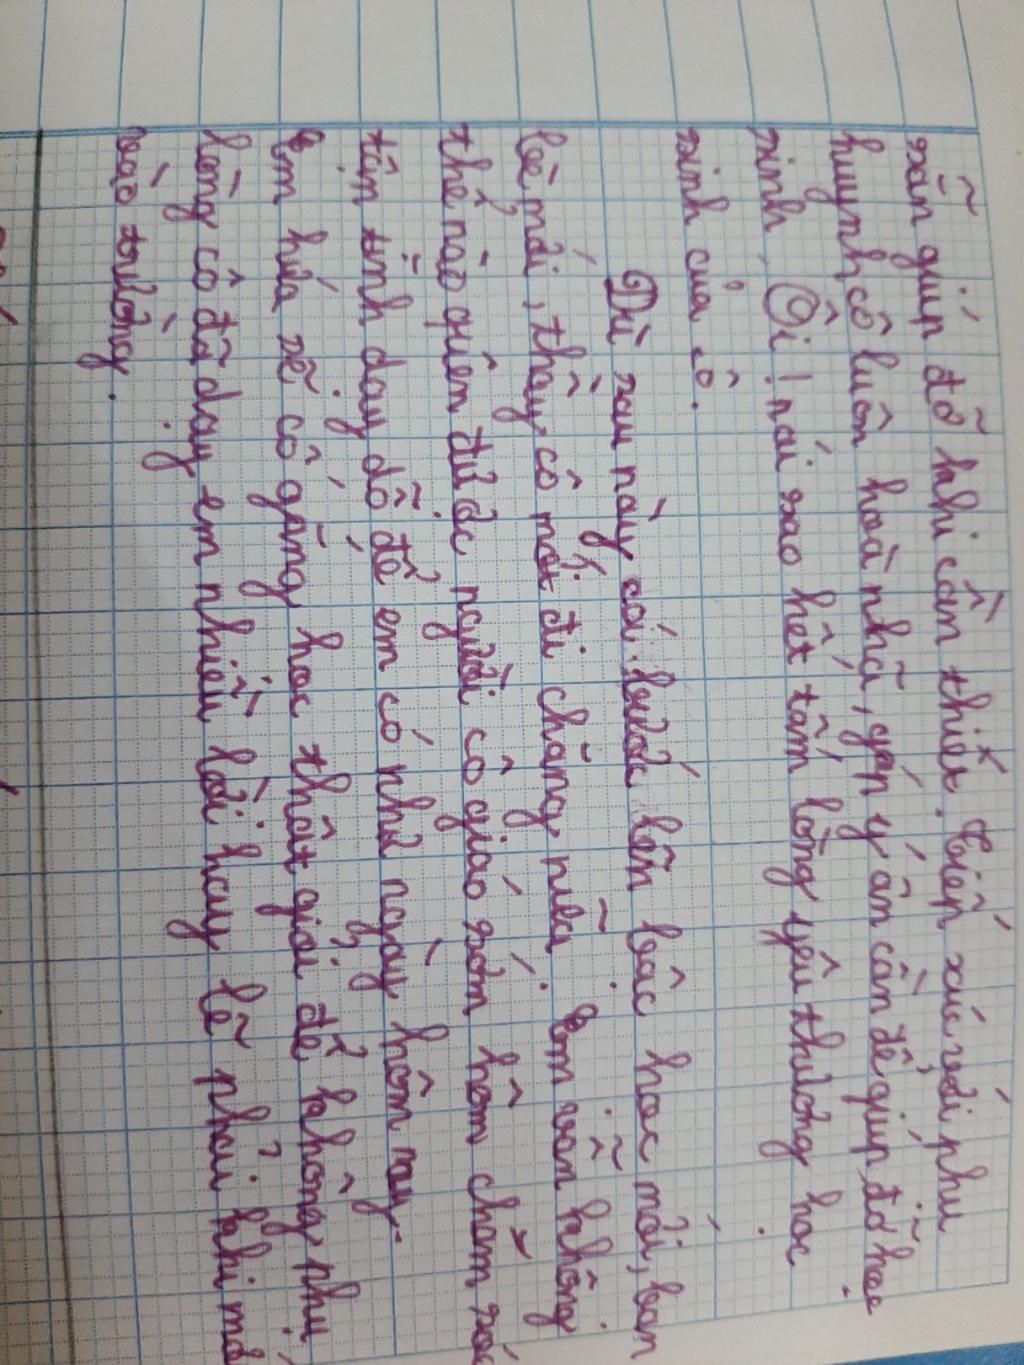 sẵn giúp đỡ khi cần thiết. Tiếp xúc với phụ
huynh cô luôn hoà nhã, góp ý ân cần để giúp đỡ học
sinh. Ôi! nói sao hết tấm lòng yêu thương học
sinh của cô.
Dù sau này có bước lên bậc học mới, bạn
bè mới, thầy cô mới đi chăng nữa. Em vẫn không
thể nào quên được người cô giáo sớm hôm chăm sóc
tận tình dạy dỗ để em có như ngày hôm nay.
Em hứa sẽ cố gắng học thật giỏi để không phụ
lòng cô đã dạy em nhiều lời hay lẽ phải khi mới
vào trường.